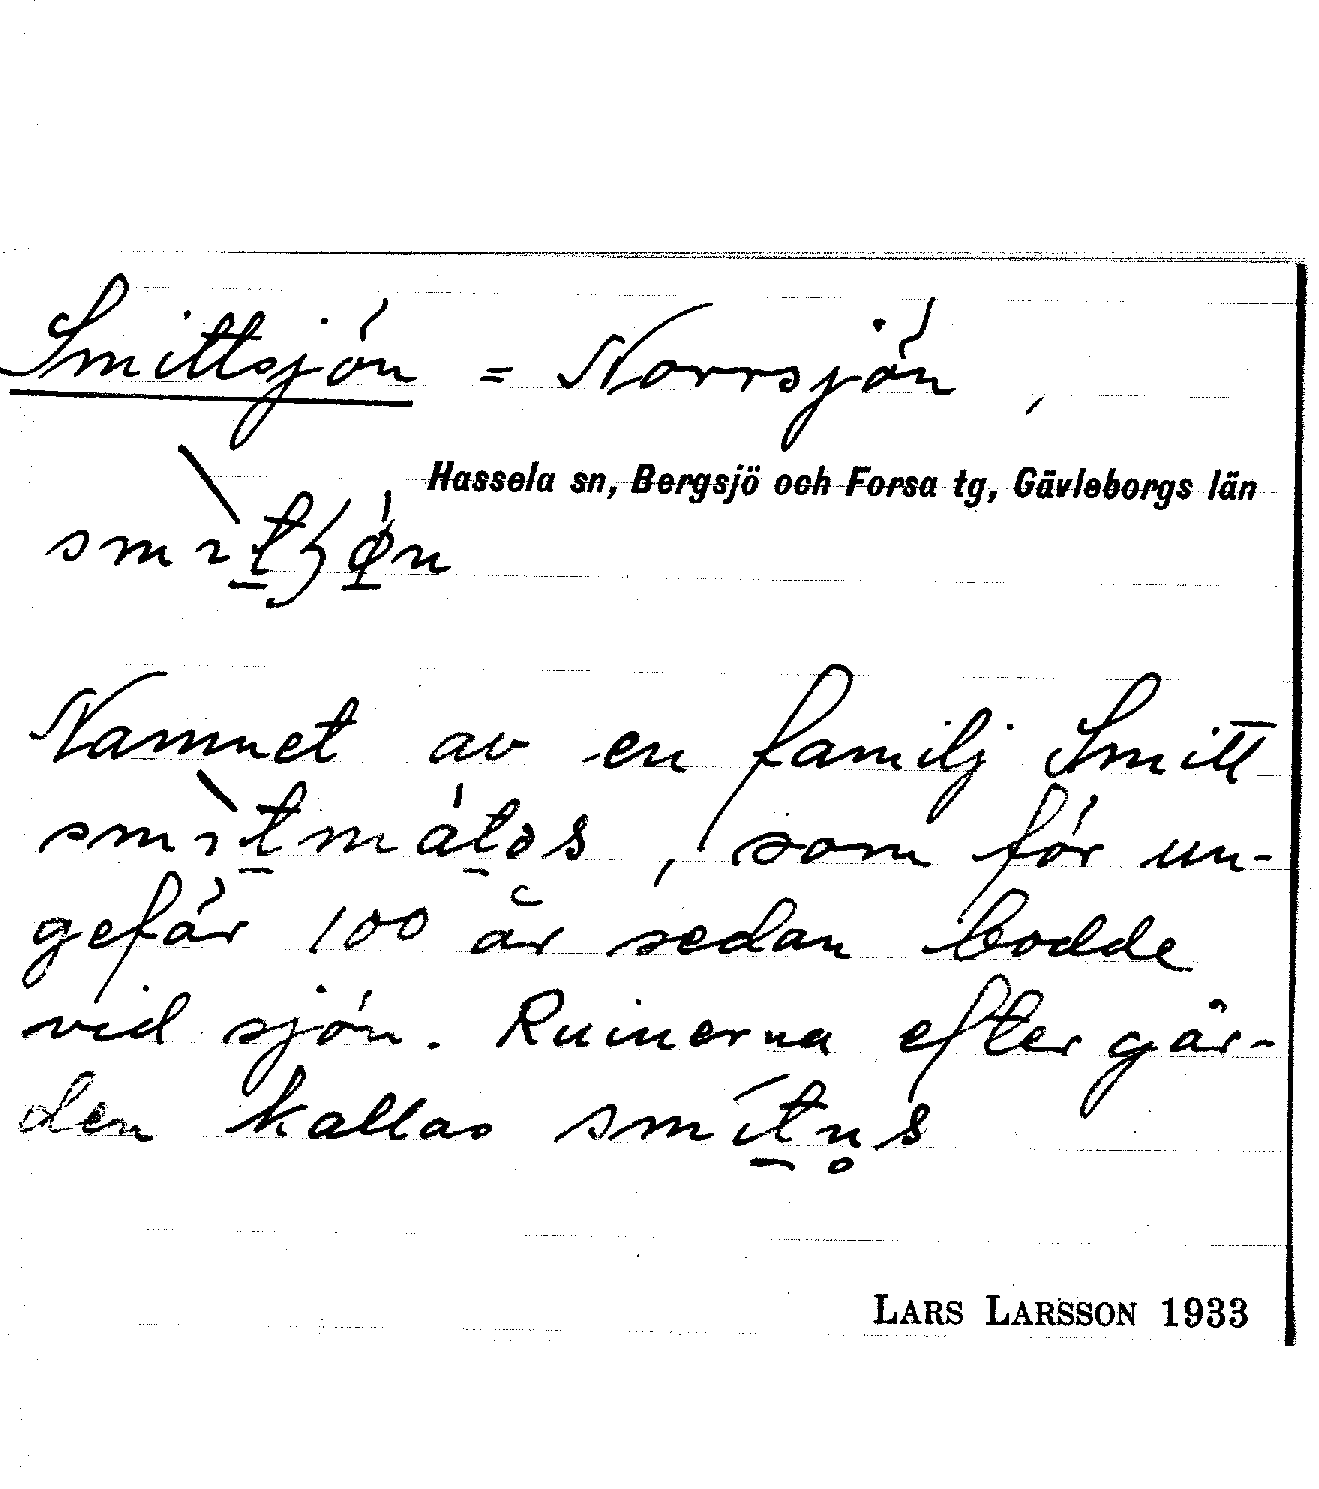 Smittsjön = Norrsjön,
Hassela sn, Bergsjö och Forsa tg, Gävleborgs län
Namnet av en familj Smitt
, som för un-
gefär 100 år sedan bodde
vid sjön. Ruinerna efter går-
den kallas
LARS LARSSON 1933